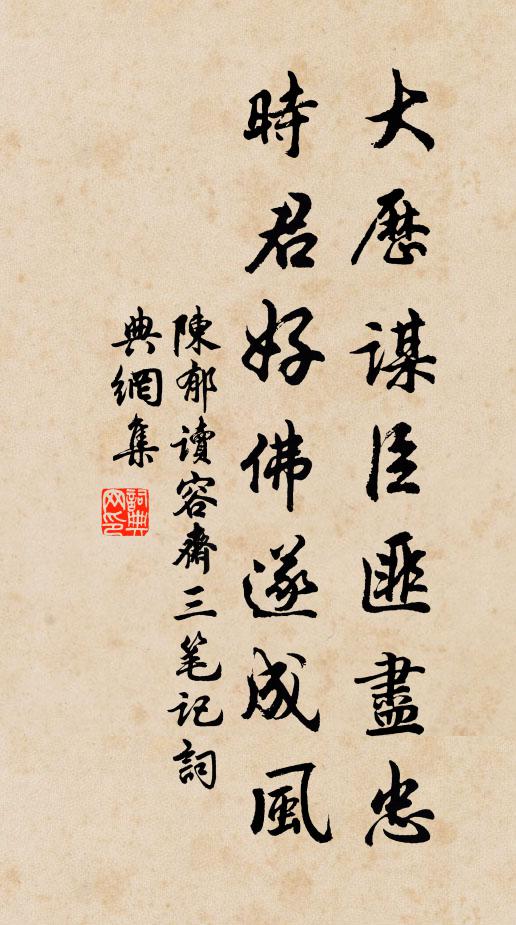 大歷謀臣匪盡忠
時君好佛遂成風
陳郁讀容齋三笔记詞
典網集
詞典
网印